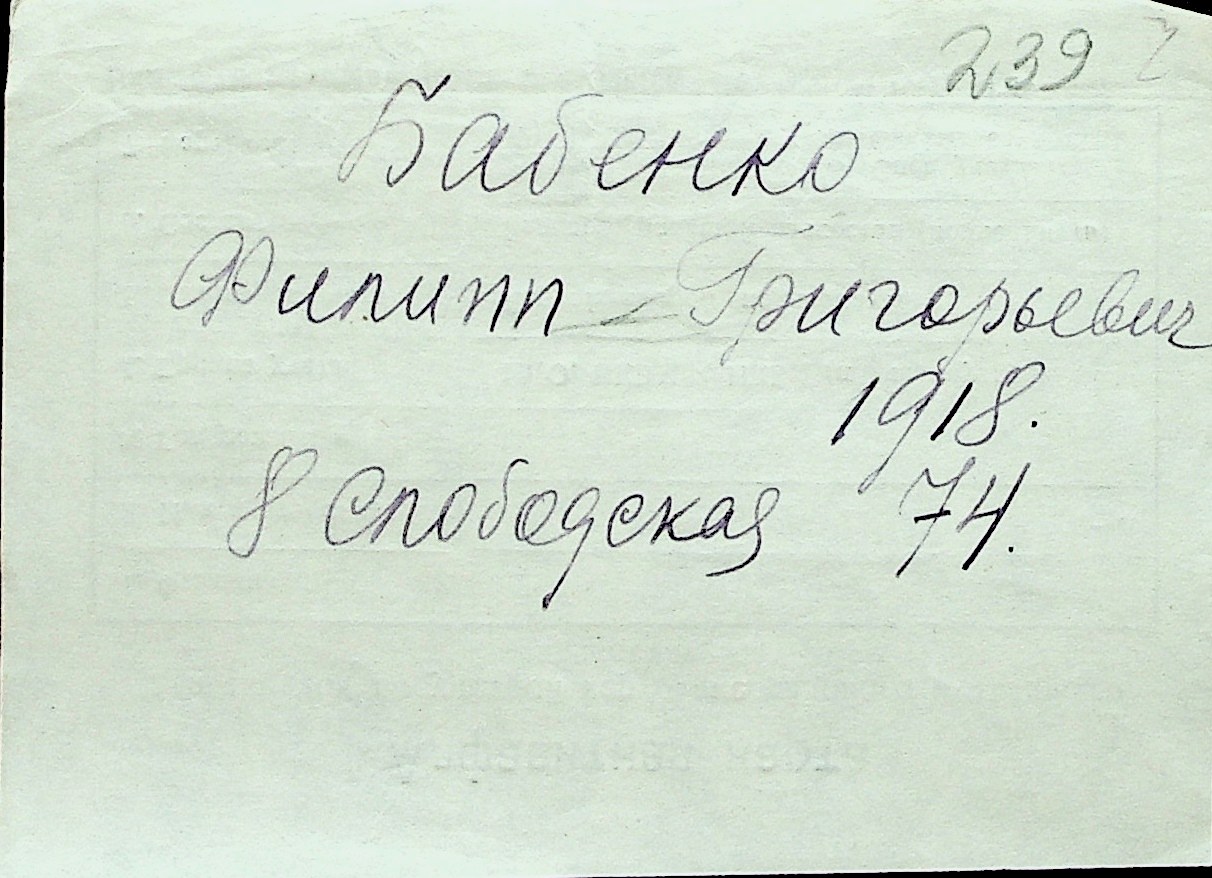 239
Бабенко
Филипп Григорьевич
1918.
8 Слободская 74.